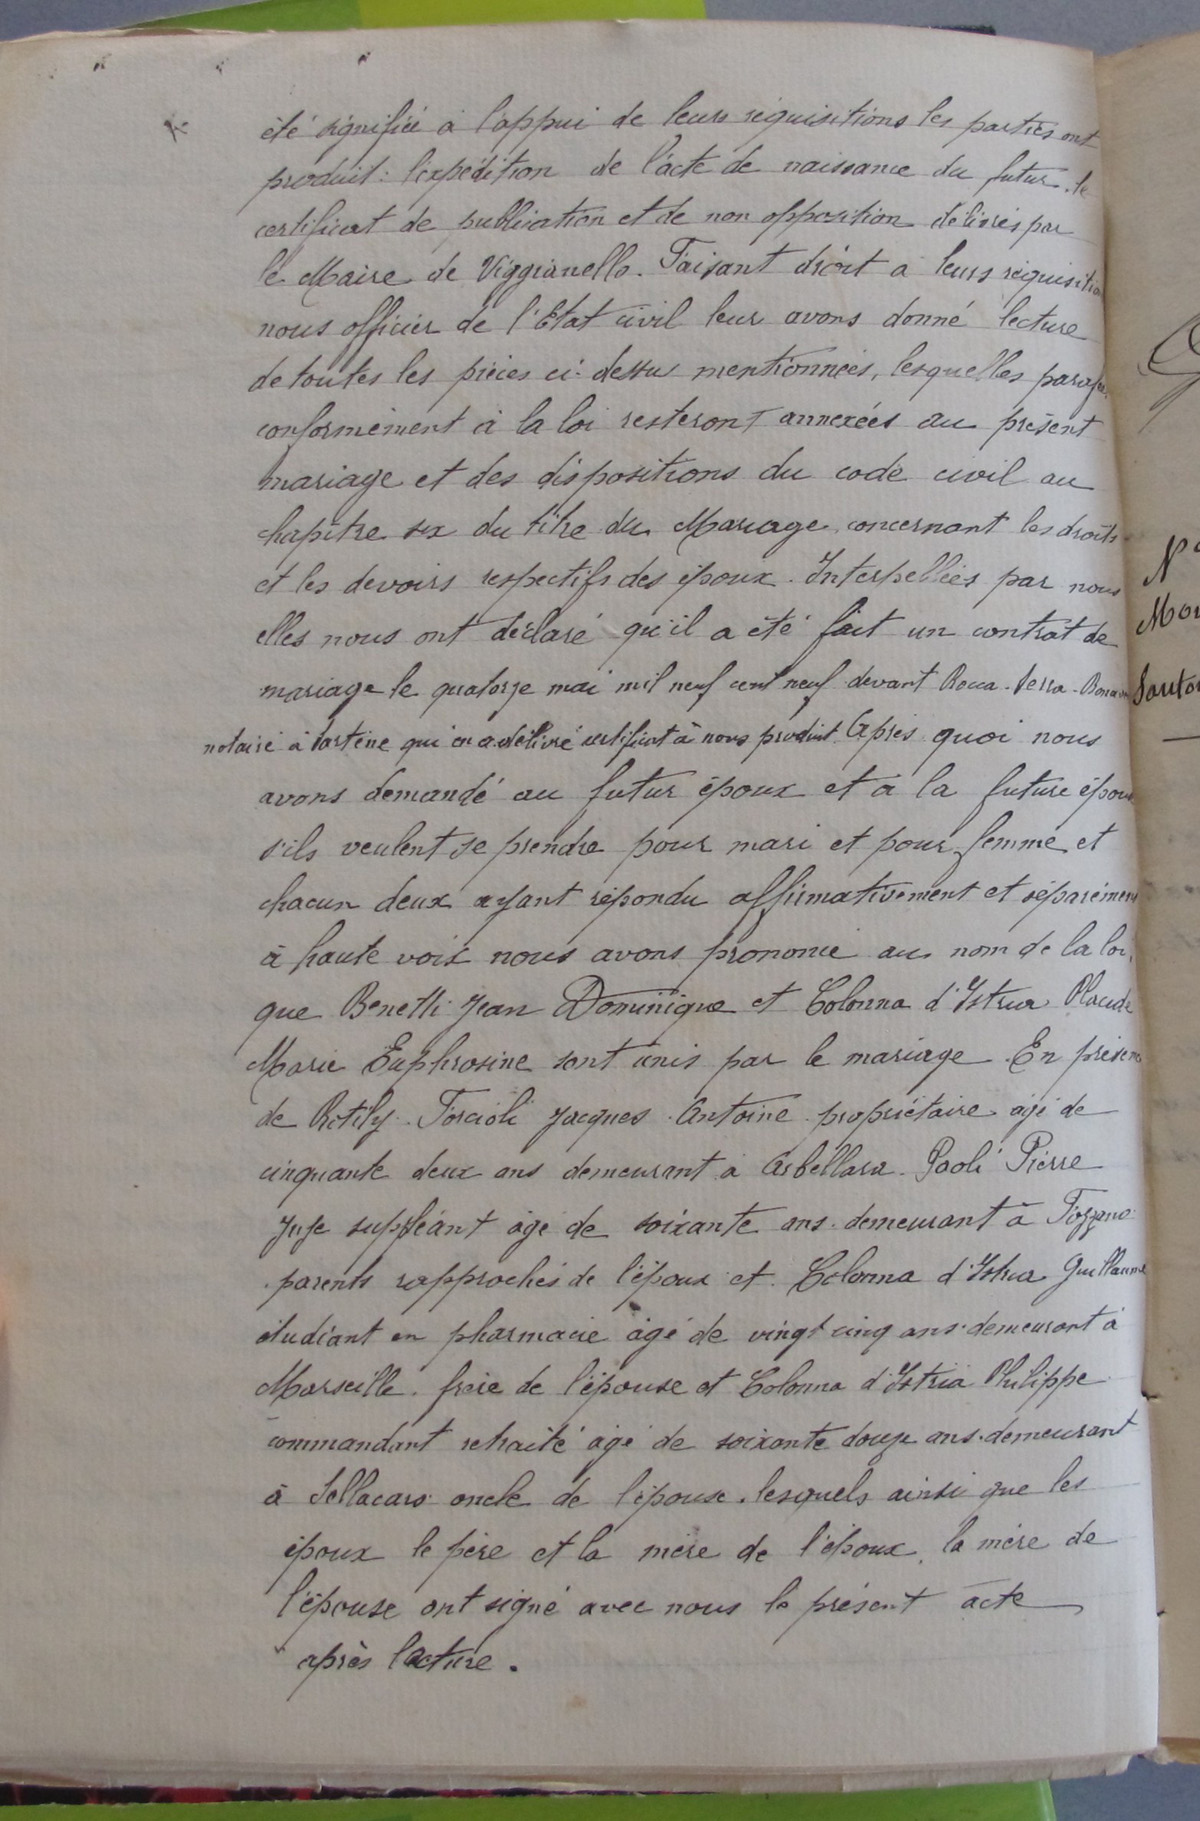 été signifiée à l'appui de leurs réquisitions les parties ont
produit: l'expédition de l'acte de naissance du futur. le
certificat de publication et de non opposition délivrés par
le Maire de Viggianello. Faisant droit à leurs réquisitions
nous officier de l'Etat civil leur avons donné lecture
de toutes les pièces ci-dessus mentionnées, lesquelles
conformément à la loi resteront annexées au présent
mariage et des dispositions du code civil au
chapitre six du titre du Mariage concernant les droits
et les devoirs respectifs des époux. Interpellées par nous
elles nous ont déclaré qu'il a été fait un contrat de
mariage le quatorze mai mil neuf cent neuf devant Rocca-Serra
notaire à Sartène qui en a délivré certificat à nous produit Après quoi nous
avons demandé au futur époux et à la future épouse
s'ils veulent se prendre pour mari et pour femme et
chacun deux ayant répondu affirmativement et séparément
à haute voix nous avons prononcé au nom de la loi,
que Benetti Jean Dominique et Colonna d'Istria Placide
Marie Euphrosine sont unis par le mariage. En présence
de Rotily-Forcioli Jacques Antoine propriétaire agé de
cinquante deux ans demeurant à Arbellara. Paoli Pierre
Juge suppléant âgé de soixante ans demeurant à Fozzano
parents rapprochés de l'époux et Colonna d'Istria Guillaume
étudiant en pharmacie âgé de vingt cinq ans demeurant à
Marseille. frère de l'épouse et Colonna d'Istria Philippe
commandant retraité agé de soixante douze ans demeurant
à Sollacaro oncle de l'épouse. lesquels ainsi que les
époux le père et la mère de l'époux, la mère de
l'épouse ont signé avec nous le présent acte
après lecture.
Mar